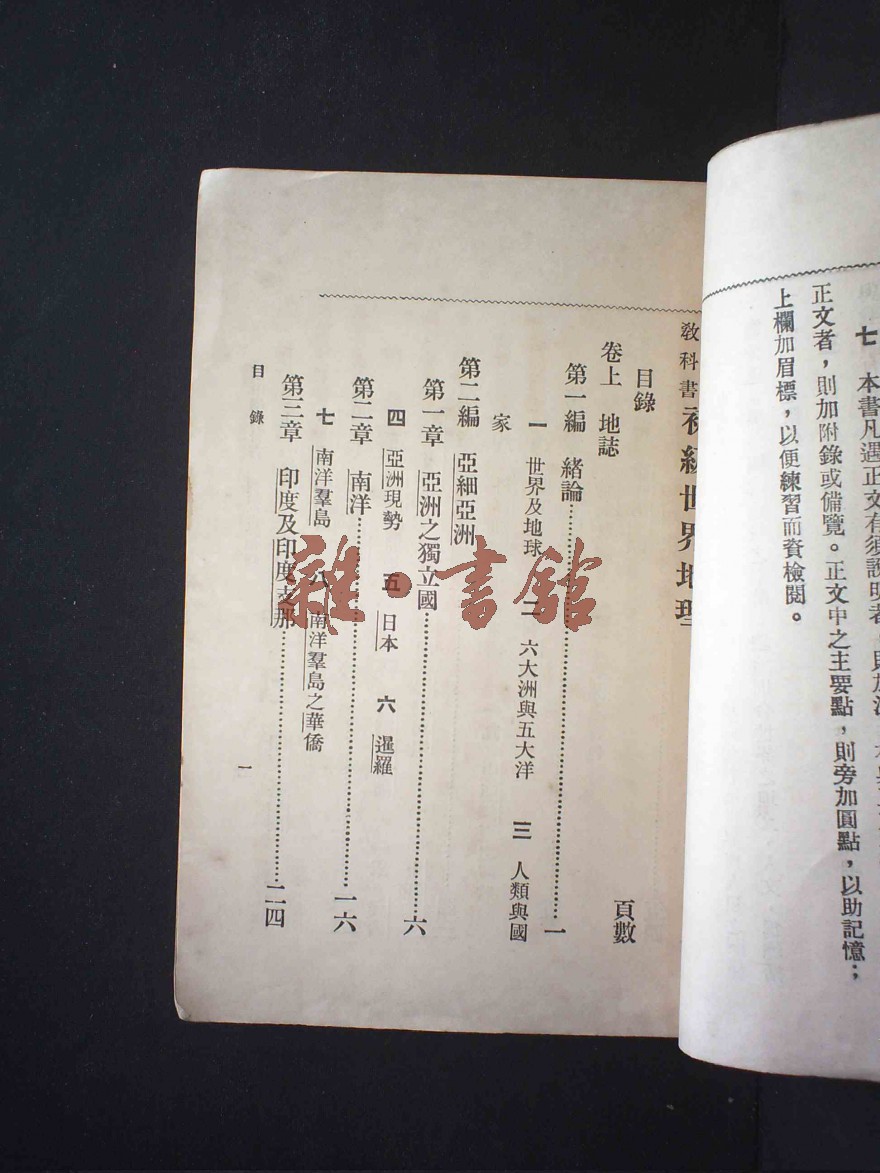 七　本書凡遇正文有須說明者
正文者，則加附錄或備覽。正文中之主要點，則旁加圓點，以助記憶；
上欄加眉標，以便練習而資檢閱。
教科書初級世界地理
目錄
卷上　地誌　頁數
第一編　緒論……一
一　世界及地球　二　六大洲與五大洋　三　人類與國
家
第二編　亞細亞洲
第一章　亞洲之獨立國……六
四　亞洲現勢　五　日本　六　暹羅
第二章　南洋……一六
七　南洋羣島　八　南洋羣島之華僑
第三章　印度及印度支那……二四
目錄
一
雜·書館